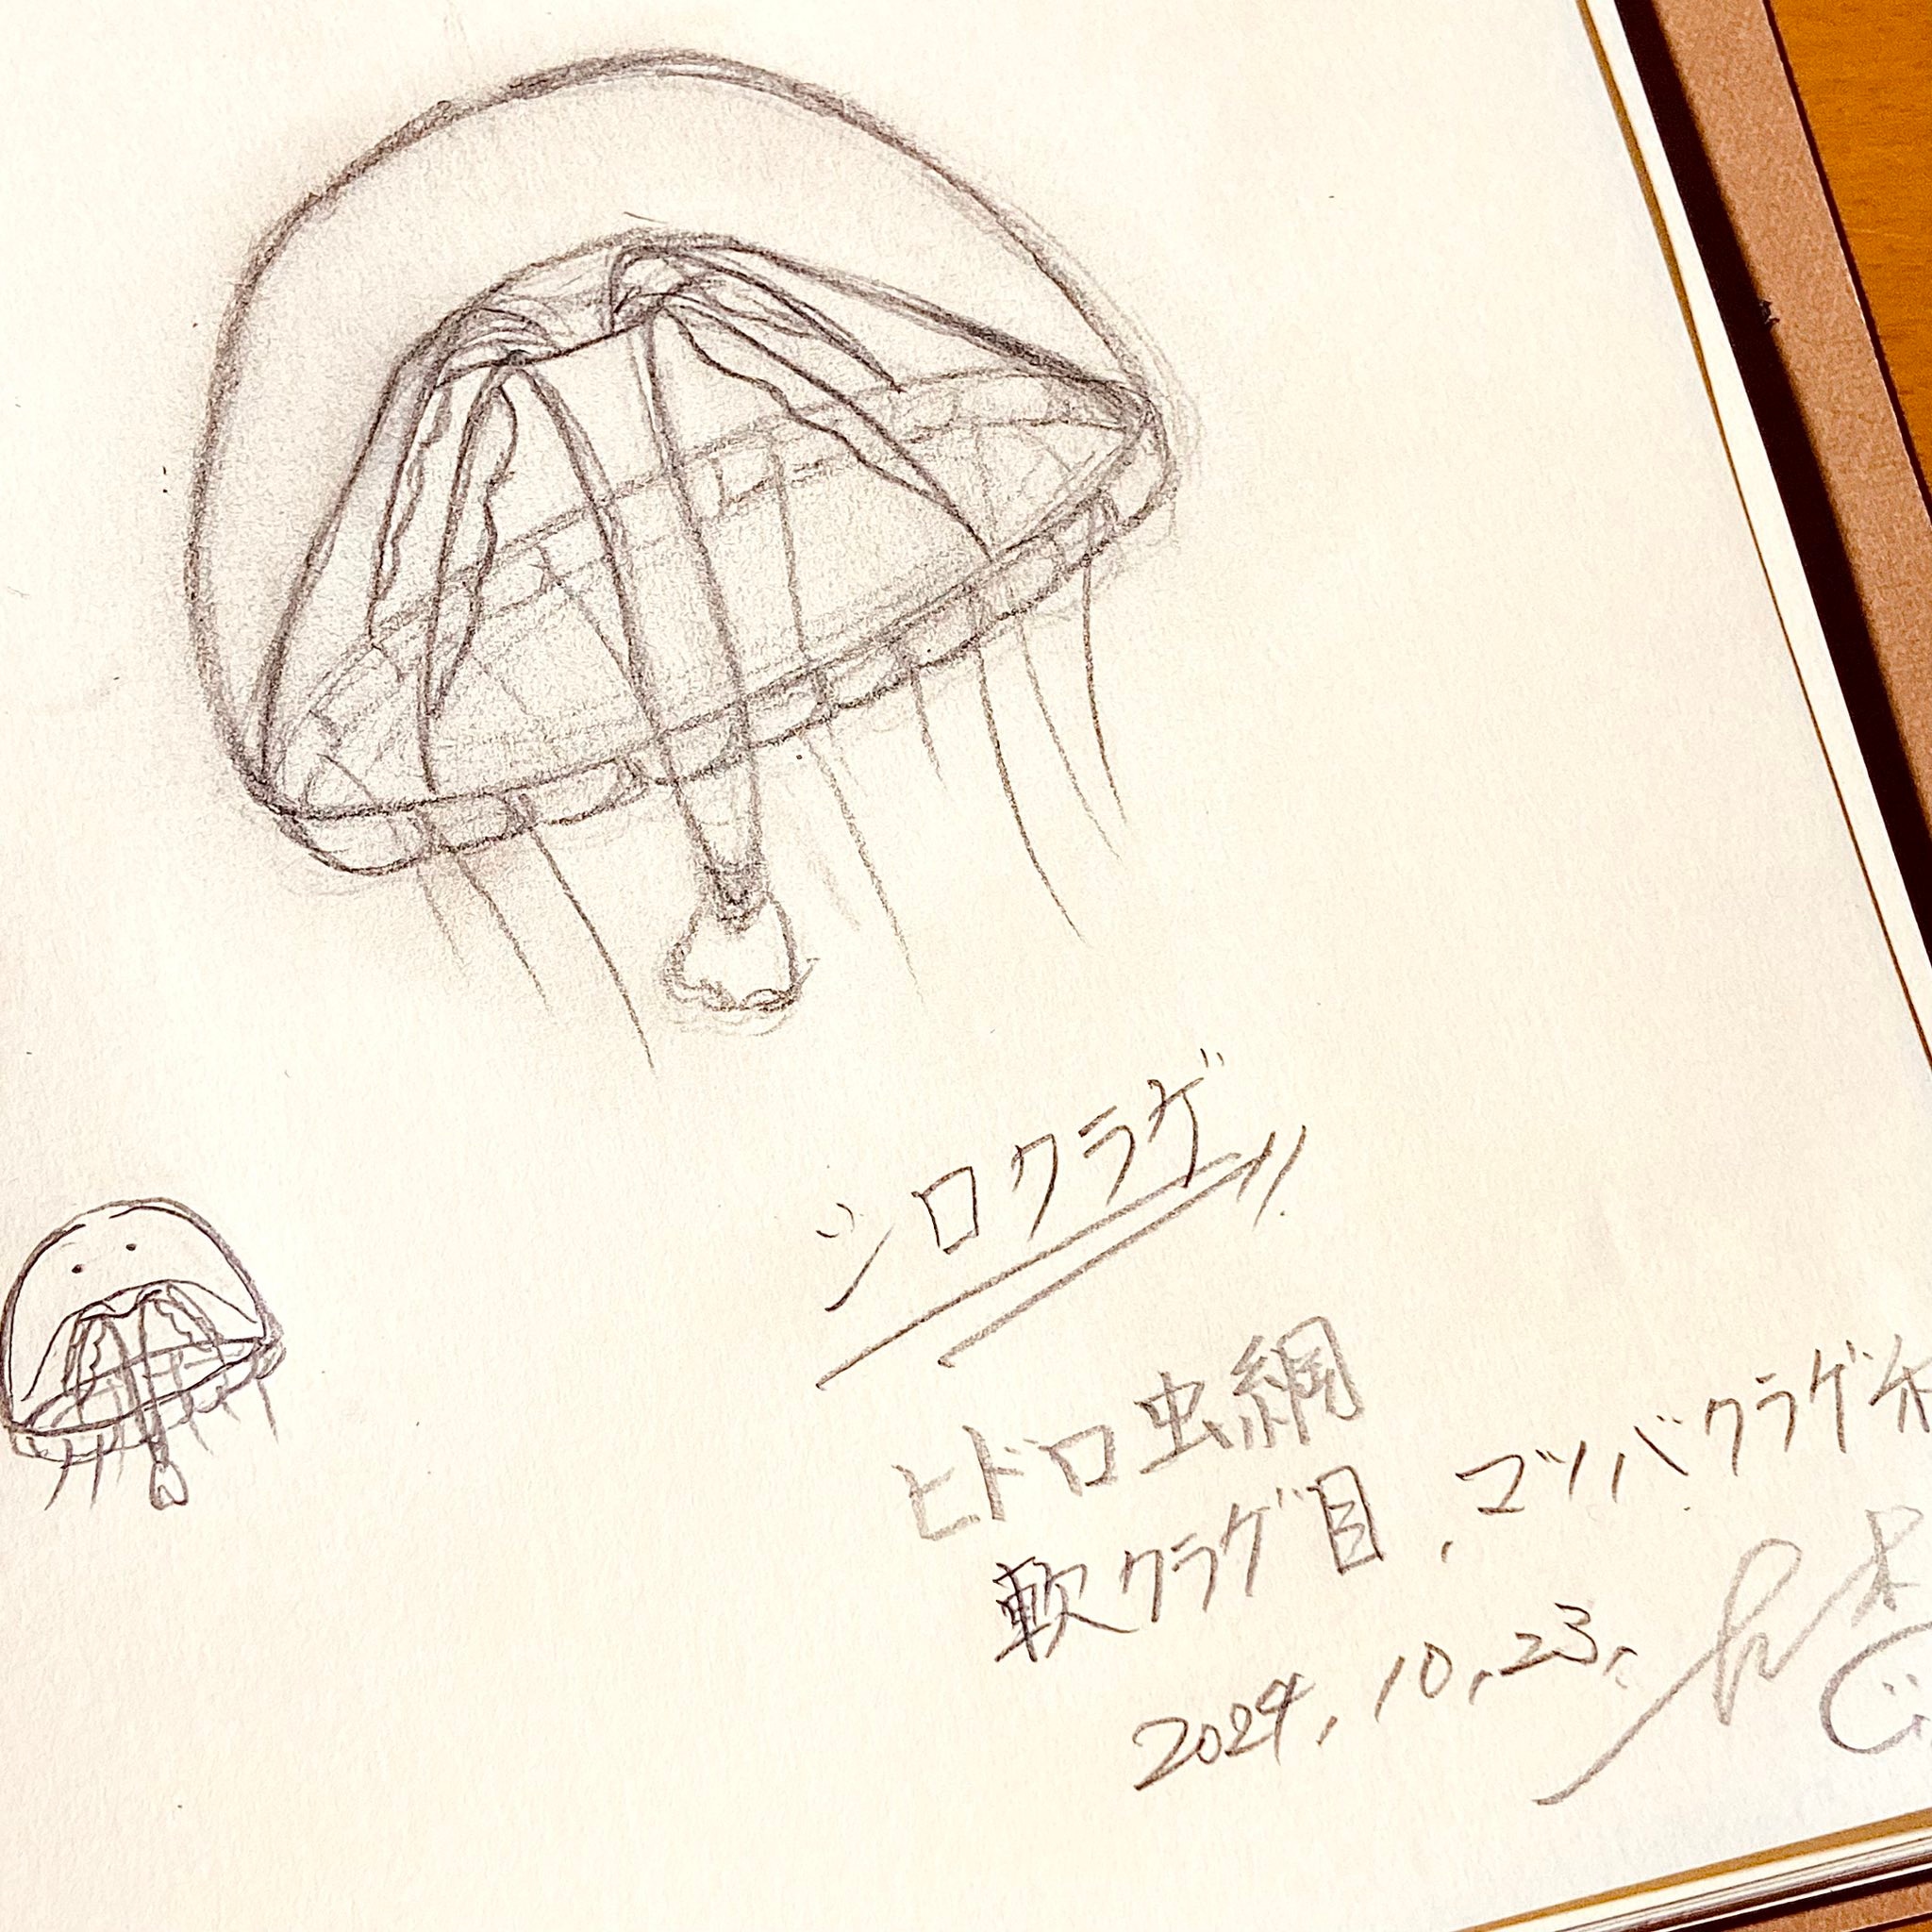 シロクラゲ
ヒドロ虫綱
軟クラゲ目、マツバクラゲ科
2024.10.23.